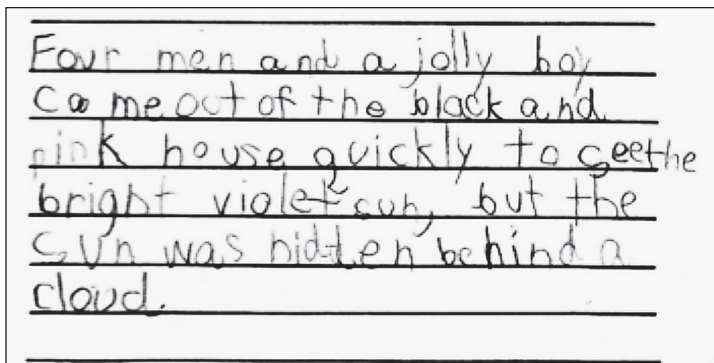 Four men and a jolly boy
came out of the black and
pink house quickly to see the
bright violet sun, but the
sun was hidden behind a
cloud.